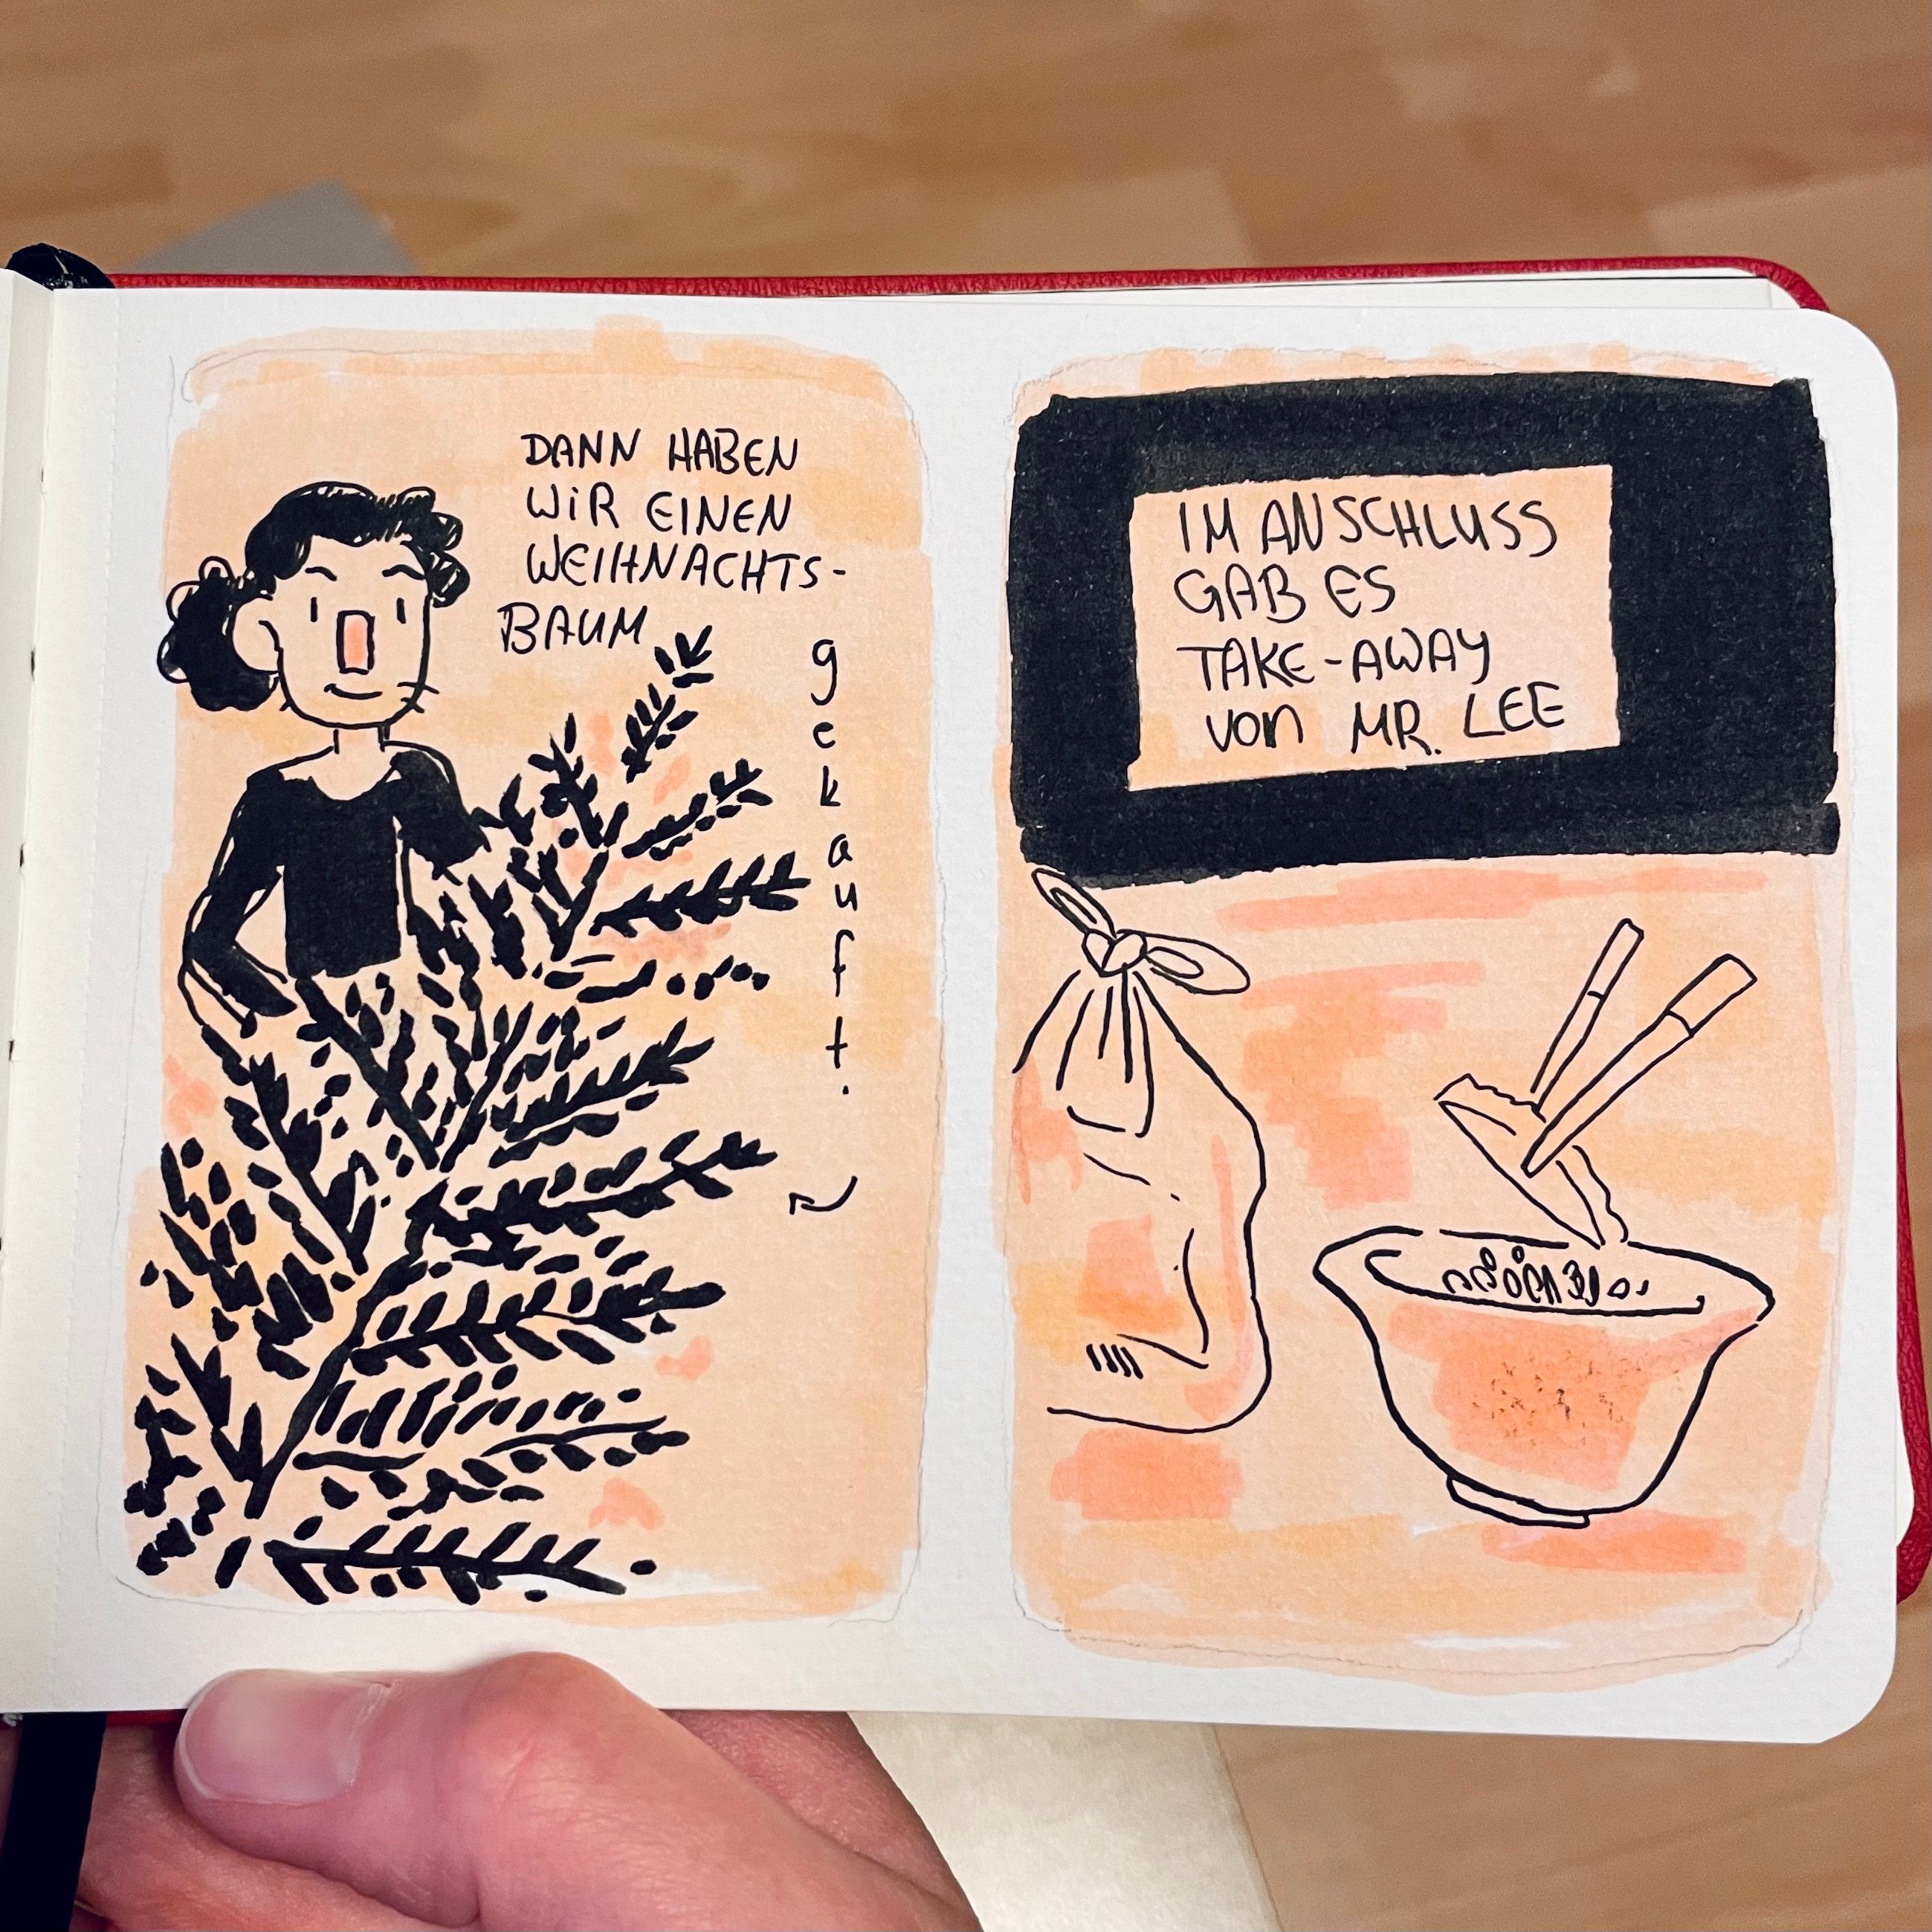 DANN HABEN
WIR EINEN
WEIHNACHTS-
BAUM
gekauft.
IM ANSCHLUSS
GAB ES
TAKE-AWAY
von MR. LEE